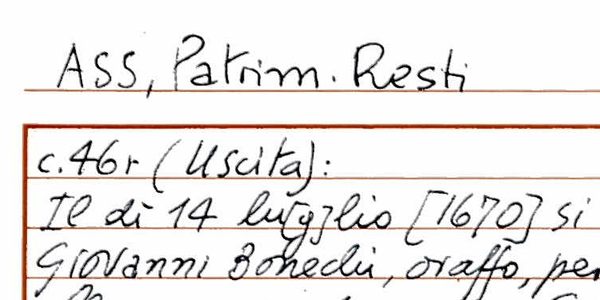 ASS, Patrim. Resti
c. 46r (Uscita):
Il dì 14 lu[g]lio [1670] si
Giovanni Bonechi, oraffo, per